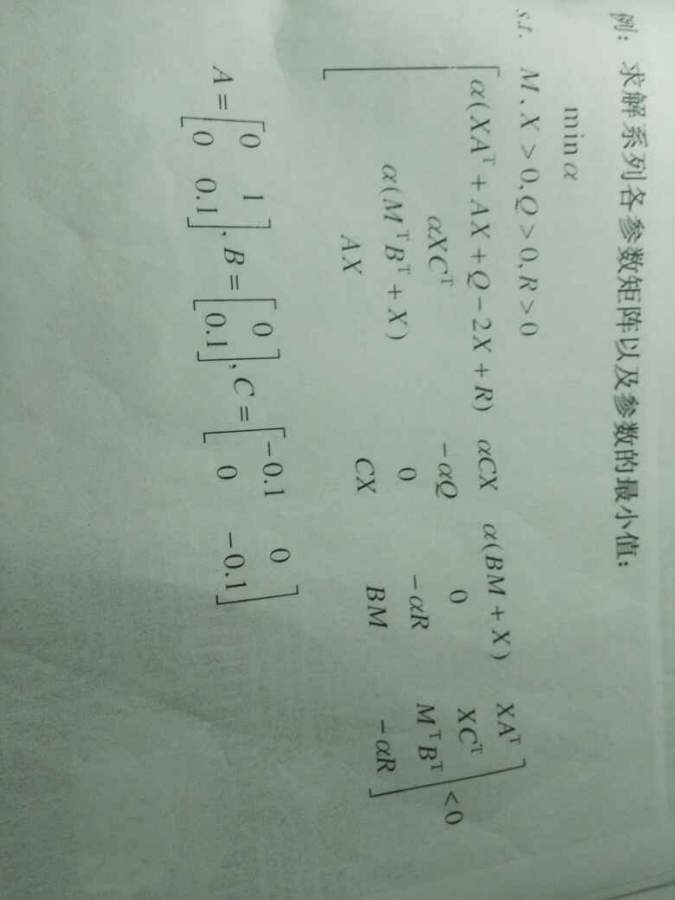 例：求解系列各参数矩阵以及参数的最小值：
min α
s.t. M、X > 0,Q > 0,R > 0
α(XAᵀ + AX + Q − 2X + R) αCX α(BM + X) XAᵀ
αXCᵀ −αQ 0 XCᵀ
α(MᵀBᵀ + X) 0 −αR MᵀBᵀ < 0
AX CX BM −αR
A = [0 1; 0 0.1], B = [0; 0.1], C = [−0.1 0; 0 −0.1]